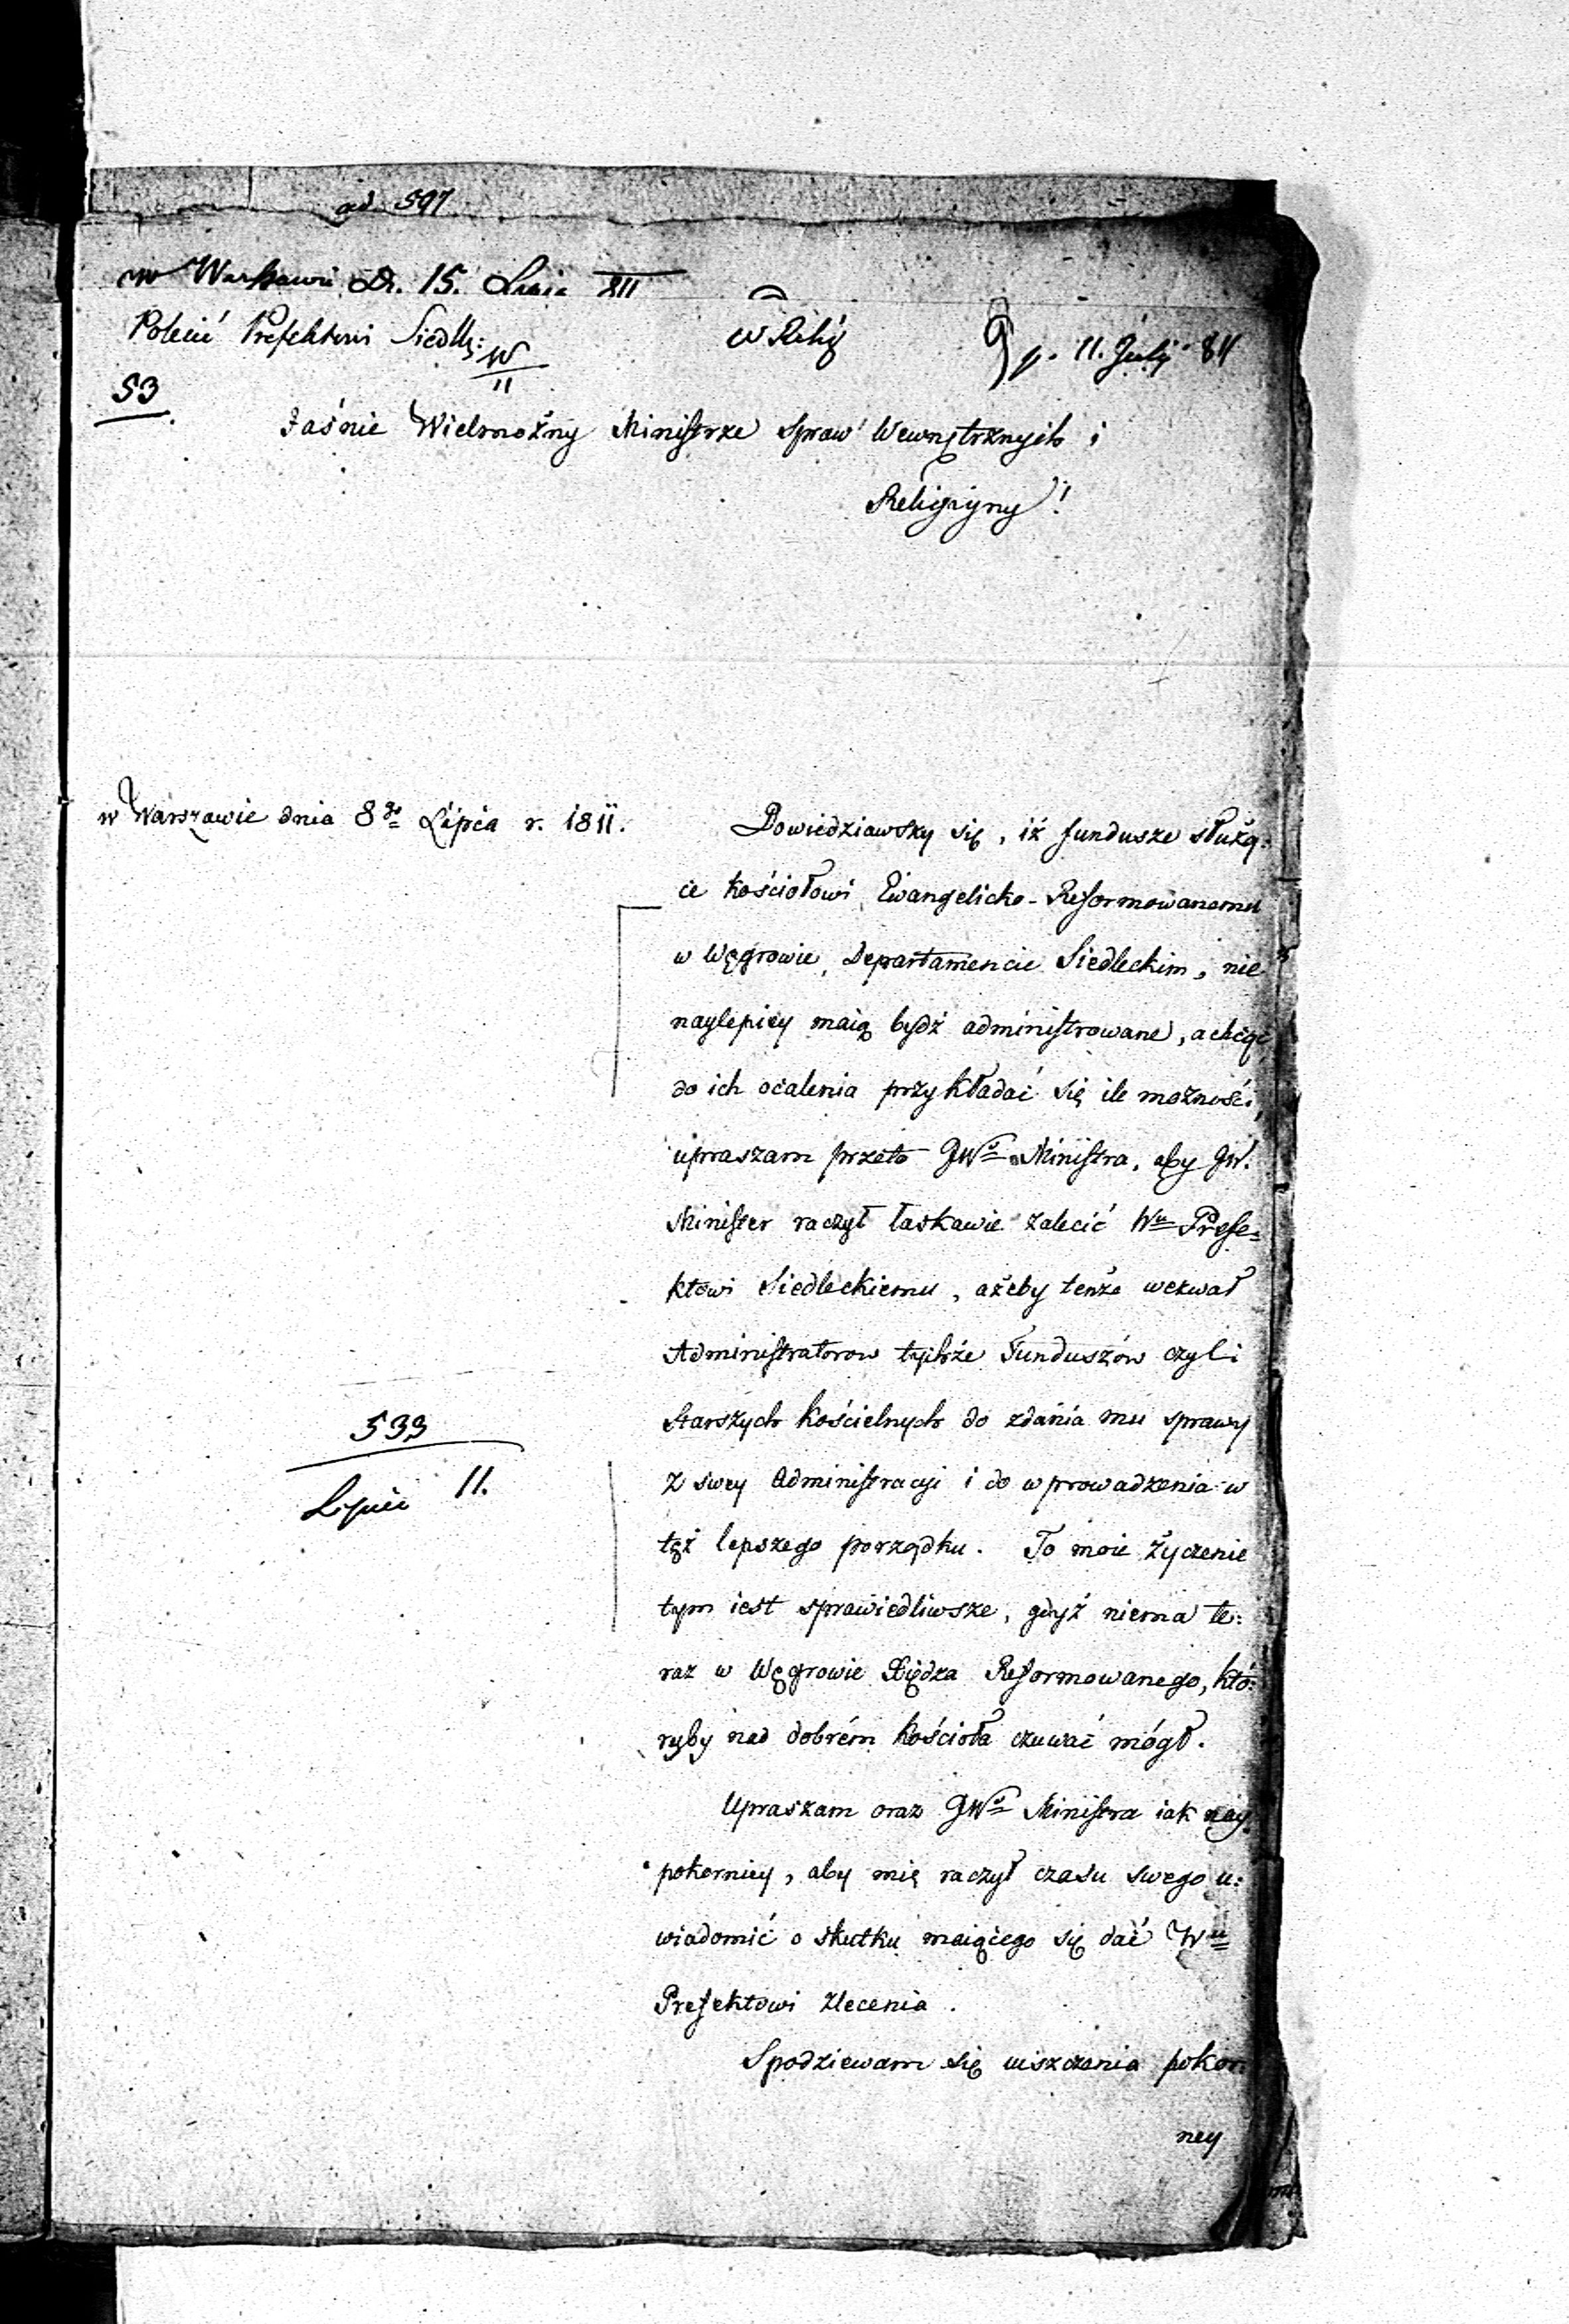 ad. 597
w Warszawie D. 15. Lipca 811
Polecić Prefektowi Siedl:
W
11
w Rkij
p. 11. Julij 811
53
Jaśnie Wielmożny Ministrze Spraw Wewnętrznych i
Religijny!
w Warszawie dnia 8go Lipca r. 1811.
Dowiedziawszy się, iż fundusze służą:
ce kościołowi Ewangelicko-Reformowanemu
w Węgrowie, Departamencie Siedleckim, nie
naylepiey maią bydź administrowane, a chcąc
do ich ocalenia przykładać się ile możności,
upraszam przeto JWo Ministra, aby JW.
Minister raczył łaskawie zalecić Wu Prefe=
ktowi Siedleckiemu, ażeby tenże wezwał
Administratorow tychże Funduszów czyli
Starszych kościelnych do zdania mu sprawy
z swey Administracyi i do wprowadzenia w
tęż lepszego porządku. To moie życzenie
tym iest sprawiedliwsze, gdyż niema te:
raz w Węgrowie Xiędza Reformowanego, któ:
ryby nad dobrém kościoła czuwać mógł.
533
Lipiec 11.
Upraszam oraz JWo Ministra iak nay:
pokorniey, aby mię raczył czasu swego u:
wiadomić o skutku maiącego się dać Wu
Prefektowi zlecenia.
Spodziewam się uiszczenia pokor:
ney